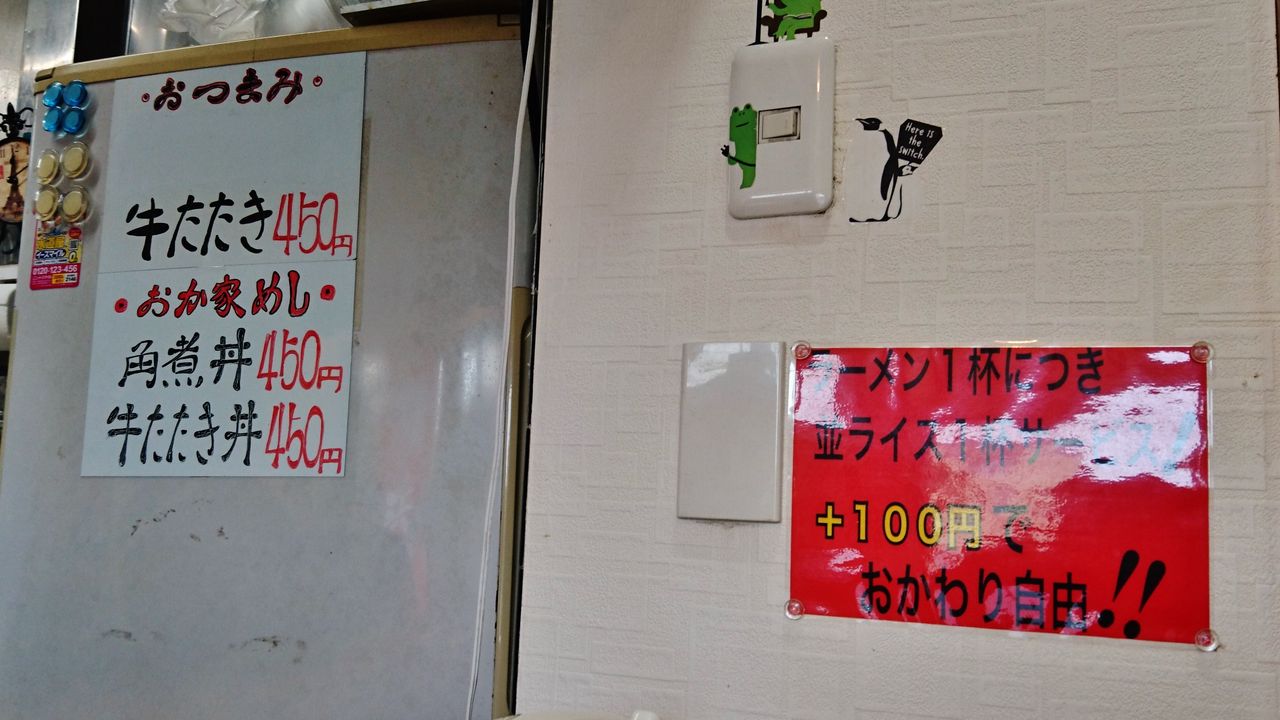 おつまみ
牛たたき450円
おか家めし
角煮丼450円
牛たたき丼450円
イースマイル
0120-123-456
Here is
the
switch.
ラーメン1杯につき
並ライス1杯サービス!
+100円で
おかわり自由!!